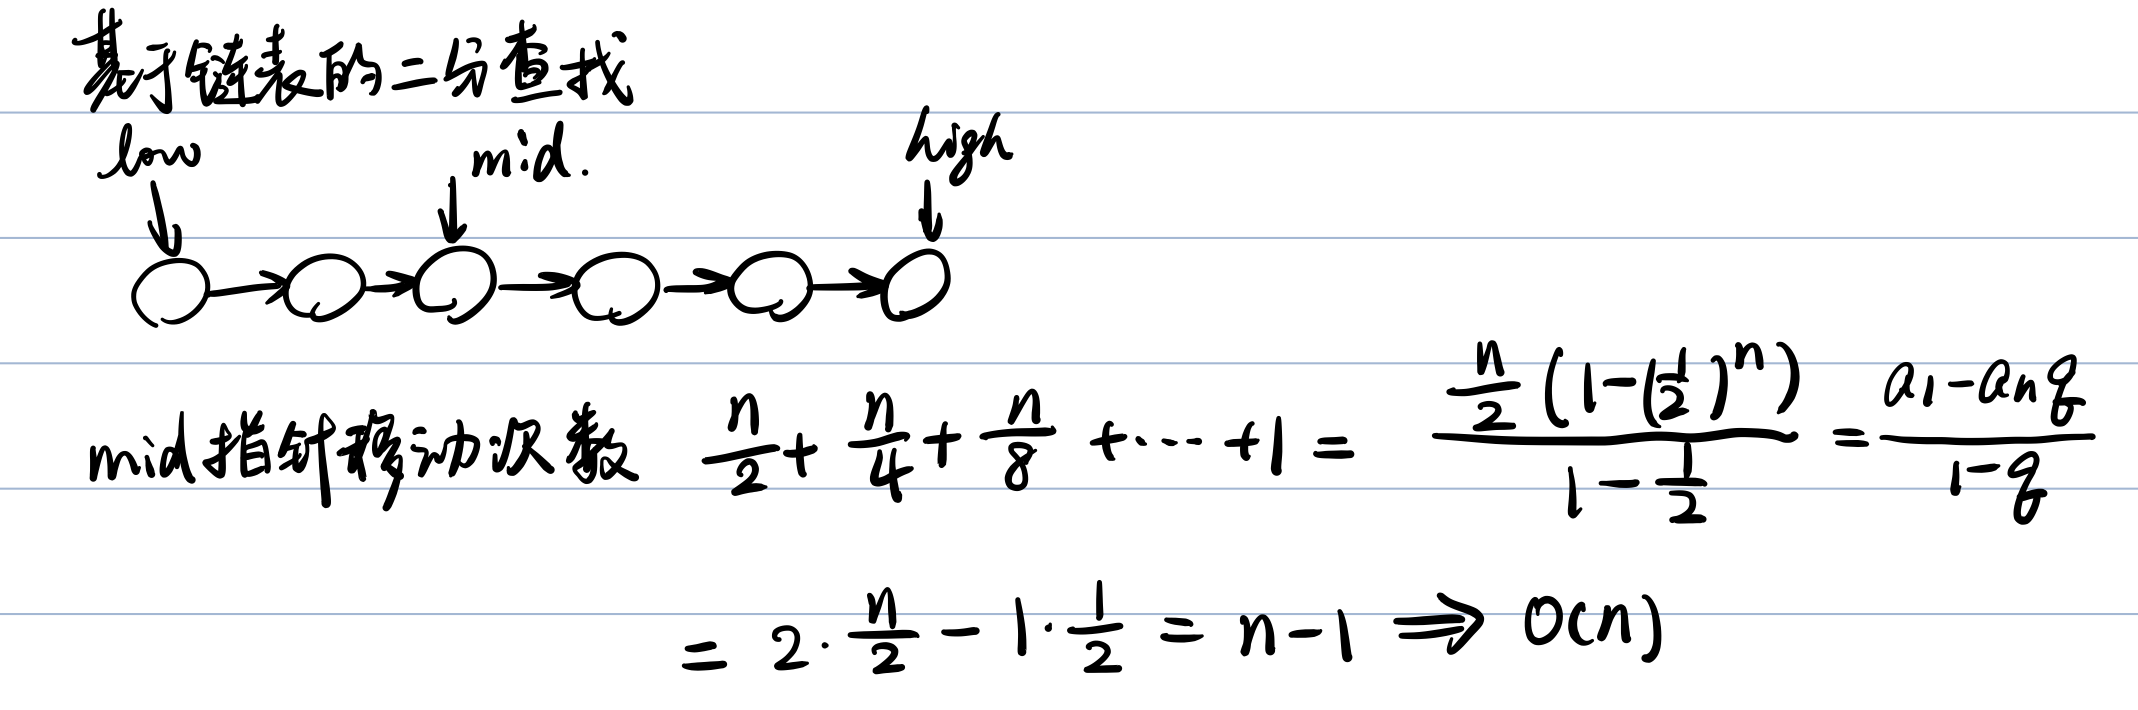 基于链表的二分查找
low mid. high
mid指针移动次数 n/2 + n/4 + n/8 + ··· + 1 = (n/2 (1-(1/2)^n)) / (1 - 1/2) = (a₁ - aₙq) / (1-q)
= 2 · n/2 - 1 · 1/2 = n-1 ⇒ O(n)